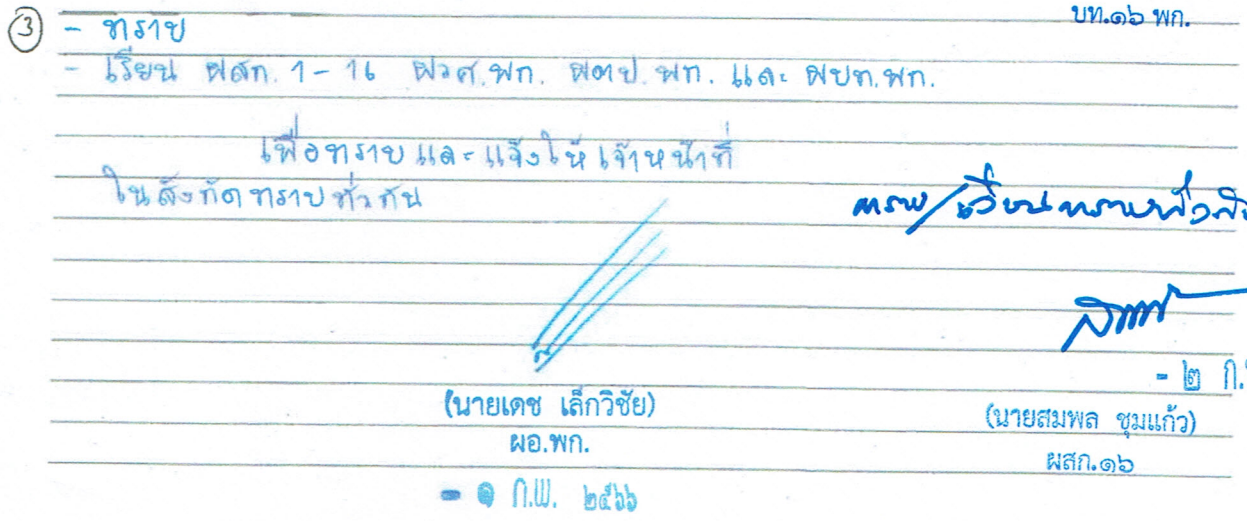 บท.๑๖ พก.
③ - ทราบ
- เรียน ผสก. 1-16 ผวศ.พก. ผตป.พก. และ ผบท.พก.
เพื่อทราบและแจ้งให้เจ้าหน้าที่
ในสังกัดทราบทั่วกัน
ทราบ/เวียนทราบทั่วกัน
(นายเดช เล็กวิชัย)
ผอ.พก.
- ๑ ก.พ. ๒๕๖๖
- ๒ ก.
(นายสมพล ชุมแก้ว)
ผสก.๑๖